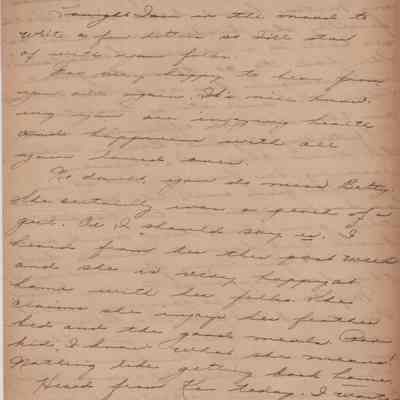 Tonight I am in the mood to
write a few letters so I'll start
off with some folks.
Was very happy to hear from
you all again. It's nice know-
ing you are enjoying health
and happiness with all
your loved ones.
No doubt, you do miss Betty.
She certainly was a pearl of a
gal. Or, I should say is. I
heard from her this past week
and she is very happy at
home with her folks. She
claims she enjoys her feather
bed and the good meals. Poor
kid, I know what she means!
Nothing like getting back home.
Heard from Ken today. I wrote